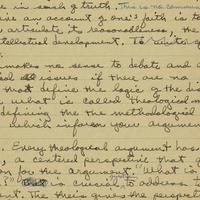 in search of truth. This is no common
give an account of one's faith is to
articulate its reasonableness, the
intellectual development. To
makes no sense to debate and
issues if there are no
that define the logic of the dis
what is called theological me
defining the methodological
which inform your argumen
. Every theological argument has
, a centered perspective that g
for the argument. "What is
?" is crucial to address
. The thesis gives the perspect